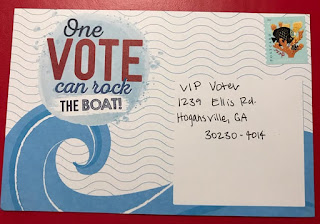 One
VOTE
can rock
THE BOAT!
VIP Voter
1239 Ellis Rd.
Hogansville, GA
30230-4014